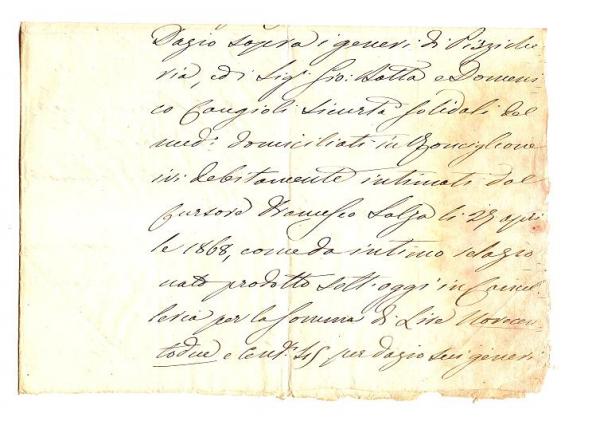 Dazio sopra i generi di Pizziche
ria, ed i Sigi Gio: Batta e Domeni
co Cangioli sicurtà solidali del
med:o domiciliati in Ronciglione
ivi debitamente intimati dal
Cursore Francesco Salza li 29 apri
le 1868, come da intimo relazio
nato prodotto sott'oggi in Cancel
leria per la somma di Lire Novecen
todue e Cent:i 45 per dazio sui generi